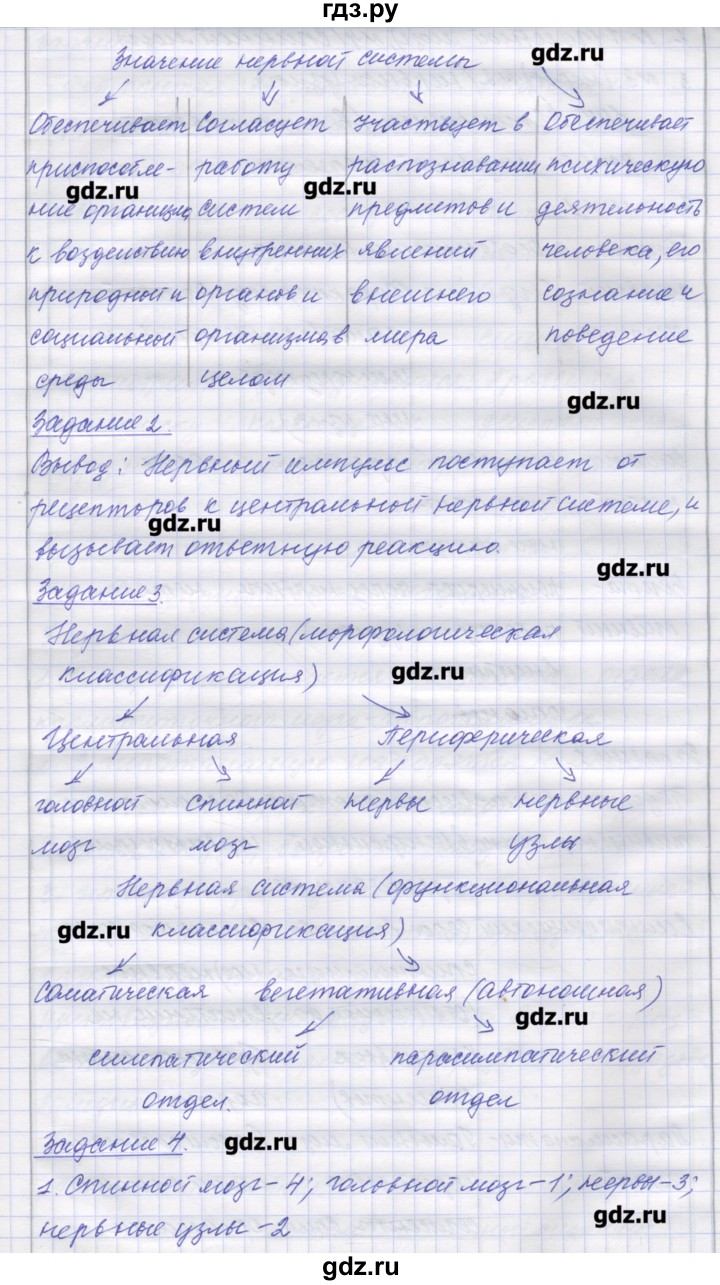 гдз.ру
Значение нервной системы
gdz.ru
Обеспечивает Согласует Участвует в Обеспечивает
приспособле- работу распознавании психическую
gdz.ru gdz.ru
ние организма систем предметов и деятельность
к воздействию внутренних явлений человека, его
природной и органов и внешнего сознание и
социальной организма в мира поведение
среды целом
gdz.ru
Задание 2.
Вывод: Нервный импульс поступает от
рецепторов к центральной нервной системе, и
gdz.ru
вызывает ответную реакцию.
gdz.ru
Задание 3.
Нервная система (морфологическая
классификация)
gdz.ru
Центральная Периферическая
головной спинной нервы нервные
мозг мозг узлы
Нервная система (функциональная
gdz.ru классификация)
Соматическая вегетативная (автономная)
gdz.ru
симпатический парасимпатический
отдел. отдел
Задание 4. gdz.ru
1. Спинной мозг – 4; головной мозг – 1; нервы – 3;
нервные узлы – 2
gdz.ru
gdz.ru